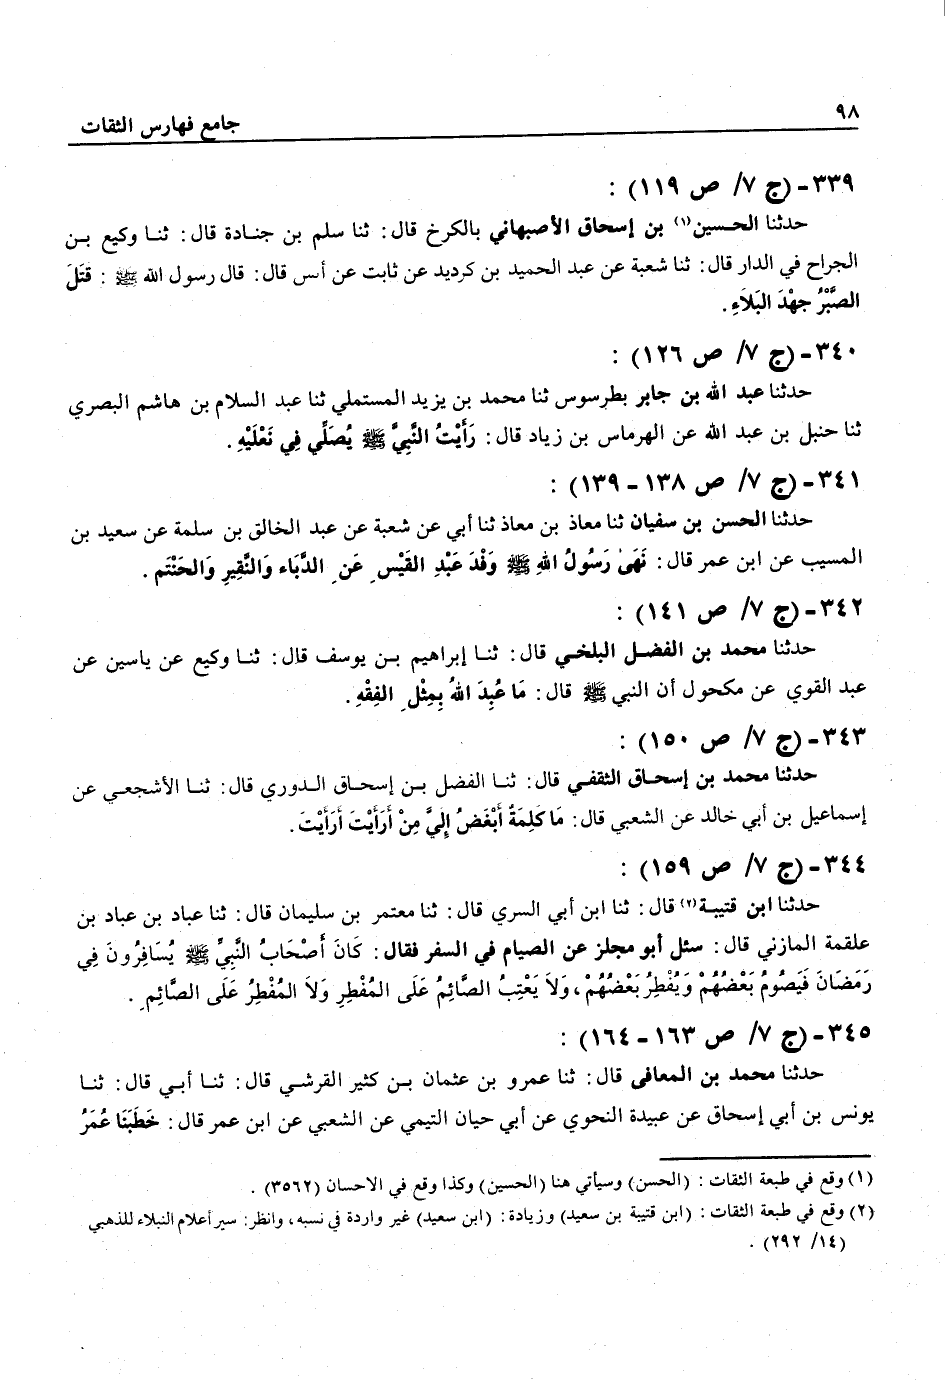 ٩٨
جامع فهارس الثقات
٣٣٩ - (ج ٧/ ص ١١٩) :
حدثنا الحسين(١) بن إسحاق الأصبهاني بالكرخ قال : ثنا سلم بن جنادة قال : ثنا وكيع بن
الجراح في الدار قال : ثنا شعبة عن عبد الحميد بن كرديد عن ثابت عن أنس قال : قال رسول الله ﷺ : قَتَلَ
الصَّبْرُ جهْدَ البَلاَءِ .
٣٤٠ - (ج ٧/ ص ١٢٦) :
حدثنا عبد الله بن جابر بطرسوس ثنا محمد بن يزيد المستملي ثنا عبد السلام بن هاشم البصري
ثنا حنبل بن عبد الله عن الهرماس بن زياد قال : رَأَيْتُ النَّبِيَّ ﷺ يُصَلِّي فِي نَعْلَيْهِ .
٣٤١ - (ج ٧/ ص ١٣٨ - ١٣٩) :
حدثنا الحسن بن سفيان ثنا معاذ بن معاذ ثنا أبي عن شعبة عن عبد الخالق بن سلمة عن سعيد بن
المسيب عن ابن عمر قال : نَهَىٰ رَسُولُ اللهِ ﷺ وَفْدَ عَبْدِ القَيْسِ عَنِ الدَّبَاء وَالنَّقِيرِ وَالحَنْتَم .
٣٤٢ - (ج ٧/ ص ١٤١) :
حدثنا محمد بن الفضل البلخي قال : ثنا إبراهيم بن يوسف قال : ثنا وكيع عن ياسين عن
عبد القوي عن مكحول أن النبي ﷺ قال : مَا عُبِدَ اللهُ بِمِثْلِ الفِقْهِ .
٣٤٣ - (ج ٧/ ص ١٥٠) :
حدثنا محمد بن إسحاق الثقفي قال : ثنا الفضل بن إسحاق الدوري قال : ثنا الأشجعي عن
إسماعيل بن أبي خالد عن الشعبي قال : مَا كَلِمَةٌ أَبْغَضُ إِلَيَّ مِنْ أَرَأَيْتَ أَرَأَيْتَ .
٣٤٤ - (ج ٧/ ص ١٥٩) :
حدثنا ابن قتيبة(٢) قال : ثنا ابن أبي السري قال : ثنا معتمر بن سليمان قال : ثنا عباد بن عباد بن
علقمة المازني قال : سئل أبو مجلز عن الصيام في السفر فقال : كَانَ أَصْحَابُ النَّبِيِّ ﷺ يُسَافِرُونَ فِي
رَمَضَانَ فَيَصُومُ بَعْضُهُمْ وَيُفْطِرُ بَعْضُهُمْ ، وَلاَ يَعْتِبُ الصَّائِمُ عَلَى المُفْطِرِ وَلاَ المُفْطِرُ عَلَى الصَّائِمِ .
٣٤٥ - (ج ٧/ ص ١٦٣ - ١٦٤) :
حدثنا محمد بن المعافى قال : ثنا عمرو بن عثمان بن كثير القرشي قال : ثنا أبي قال : ثنا
يونس بن أبي إسحاق عن عبيدة النحوي عن أبي حيان التيمي عن الشعبي عن ابن عمر قال : خَطَبَنَا عُمَرُ
(١) وقع في طبعة الثقات : (الحسن) وسيأتي هنا (الحسين) وكذا وقع في الاحسان (٣٥٦٢) .
(٢) وقع في طبعة الثقات : (ابن قتيبة بن سعيد) وزيادة : (ابن سعيد) غير واردة في نسبه ، وانظر : سير أعلام النبلاء للذهبي
(١٤/ ٢٩٢) .